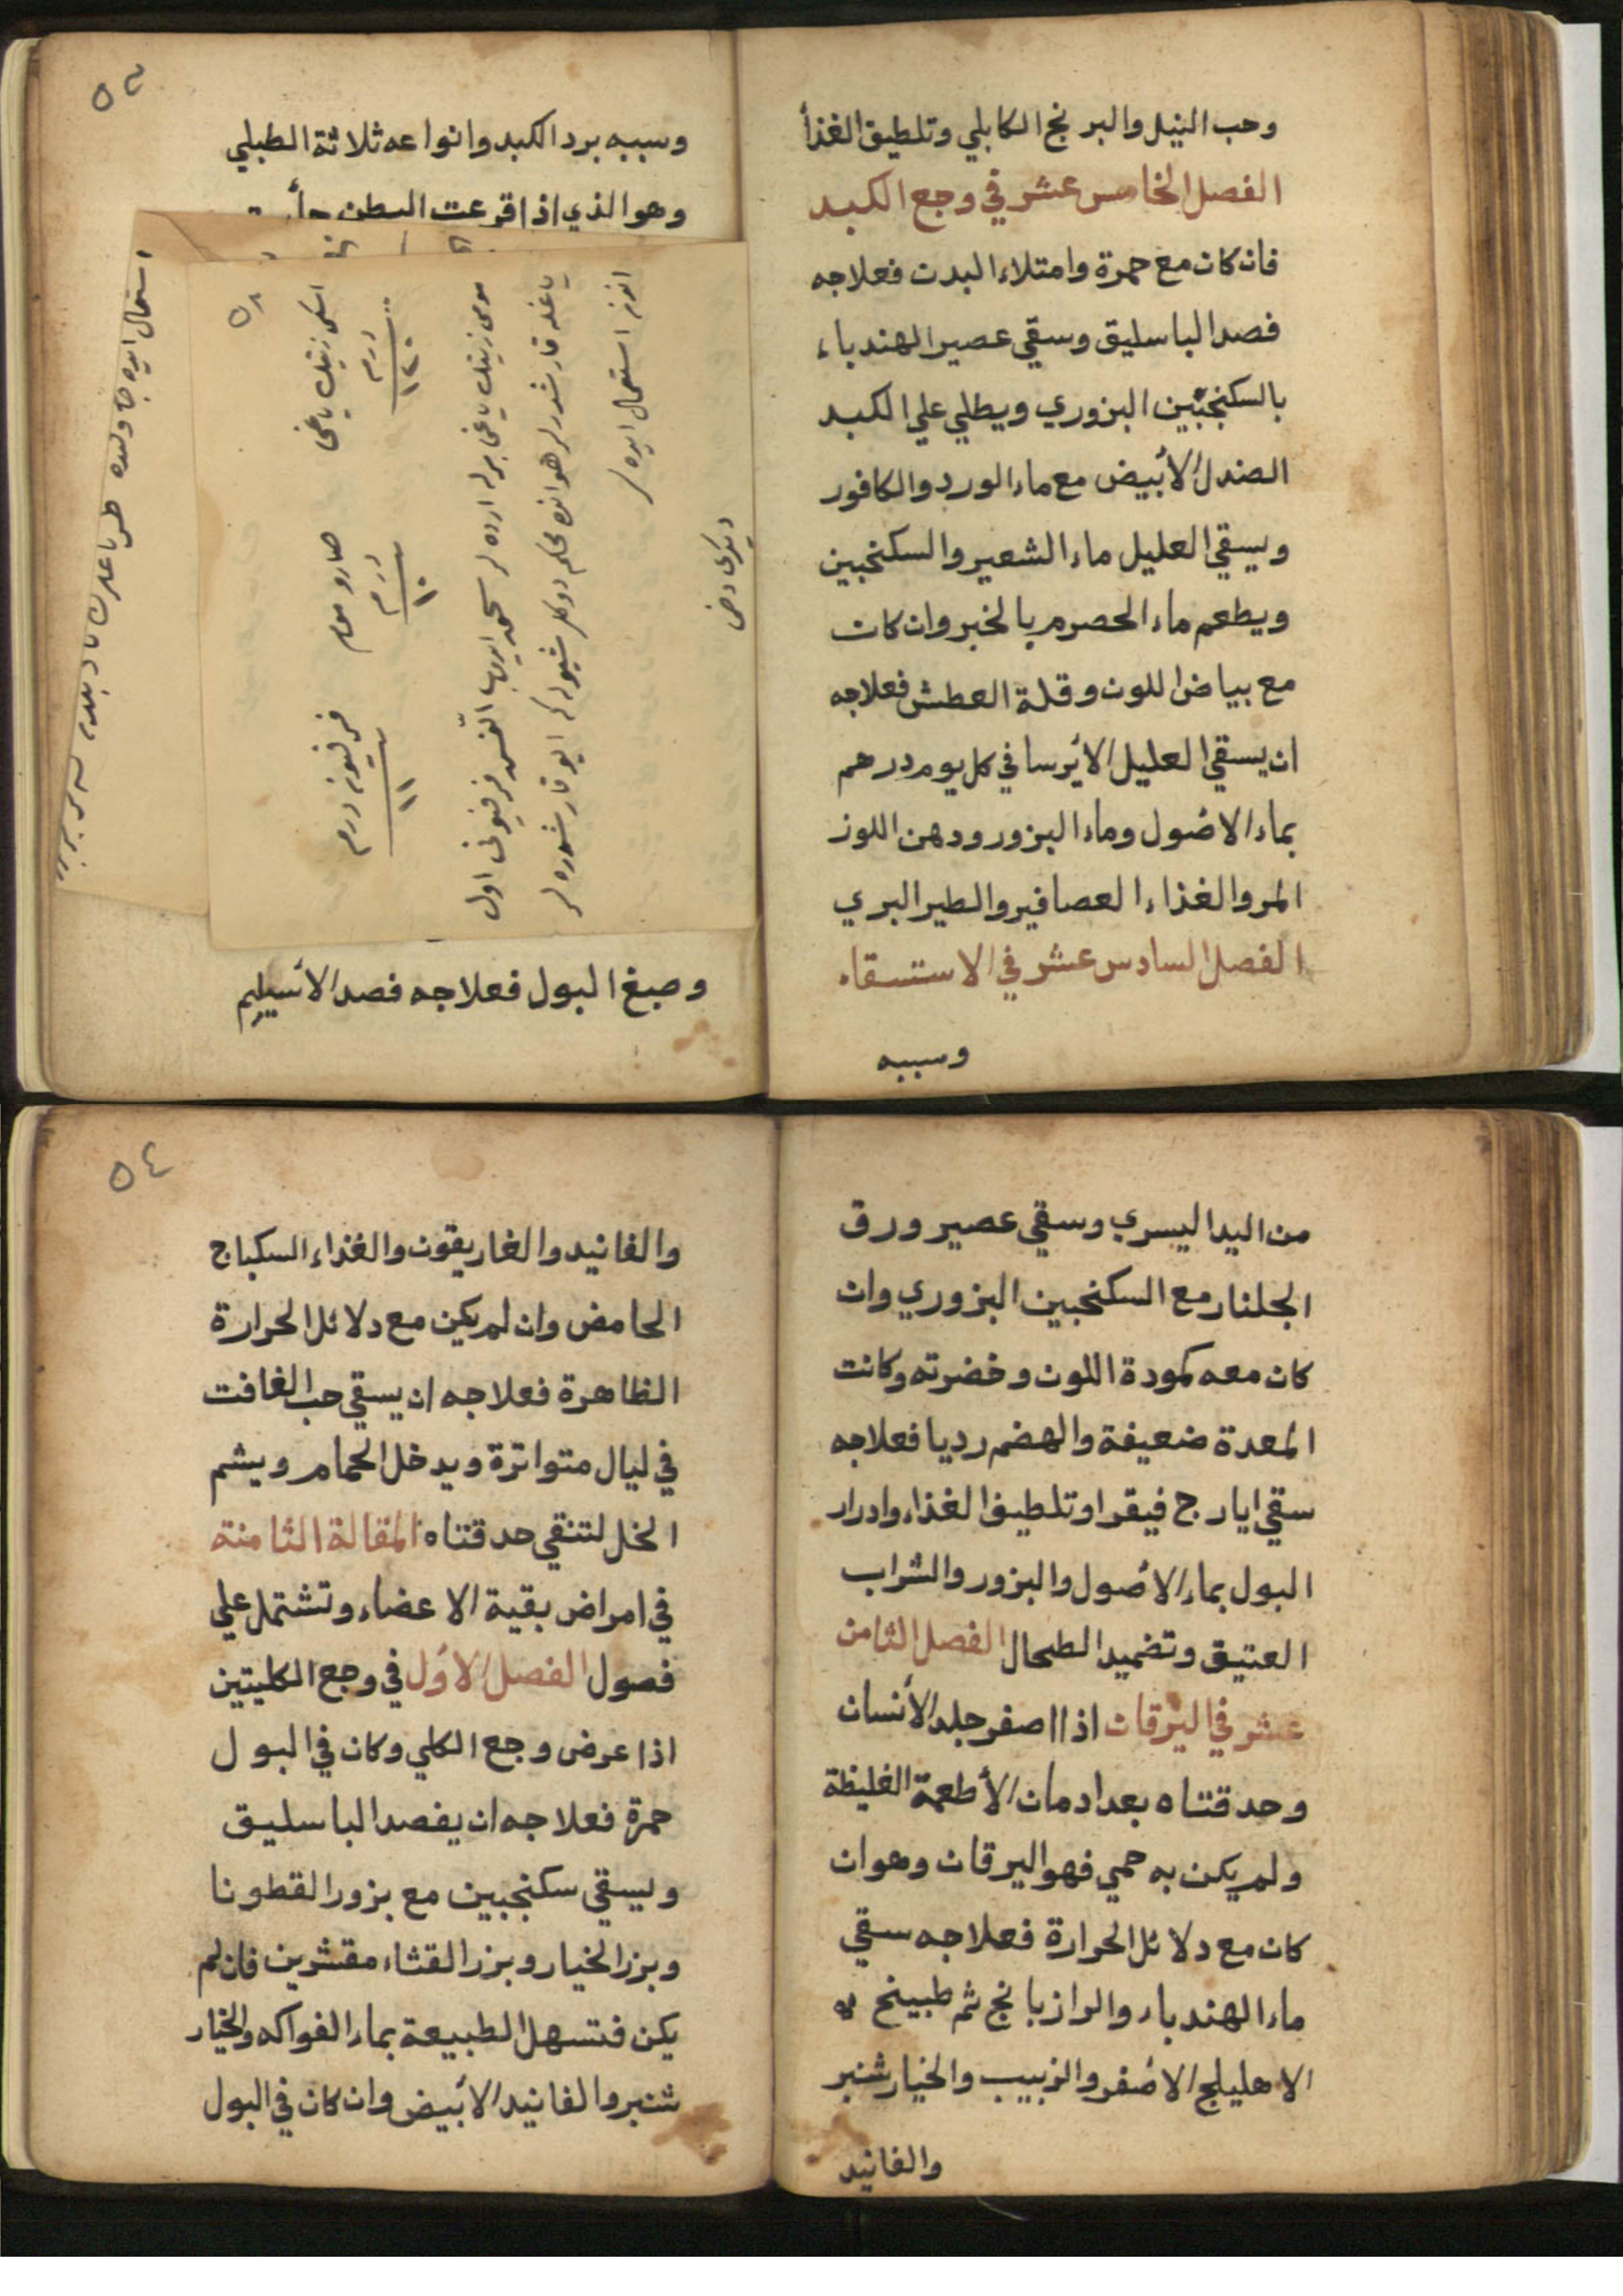 وحب النيل والبرنج الكابلي وتلطيف الغذأ
الفصل الخامس عشر في وجع الكبد
فان كان مع حمرة وامتلاء البدن فعلاجه
فصد الباسليق وسقي عصير الهندباء
بالسكنجبين البزوري ويطلي علي الكبد
الصندل الأبيض مع ماء الورد والكافور
ويسقي العليل ماء الشعير والسكنجبين
ويطعم ماء الحصرم بالخبز وان كان
مع بياض اللون وقلة العطش فعلاجه
ان يسقي العليل الأيرسا في كل يوم درهم
بماء الاصول وماء البزور ودهن اللوز
المر والغذاء العصافير والطير البري
الفصل السادس عشر في الاستسقاء
وسببه
٥٣
وسببه برد الكبد وانواعه ثلاثة الطبلي
وهو الذي اذا قرعت البطن
٥٨
اسكى زيتك ياغى صارو موم فرفيون درم
درم
درم
١٢٠
١٠
١١
انى استعمال ايده
وصبغ البول فعلاجه فصد الأسيلم
من اليد اليسري وسقي عصير ورق
الجلنار مع السكنجبين البزوري وان
كان معه كمودة اللون وخضرته وكانت
المعدة ضعيفة والهضم رديا فعلاجه
سقي ايارج فيقرا وتلطيف الغذاء وادرار
البول بماء الأصول والبزور والشراب
العتيق وتضميد الطحال الفصل الثامن
عشر في اليرقان اذا اصفر جلد الأنسان
وحدقتاه بعد ادمان الأطعمة الغليظة
ولم يكن به حمي فهو اليرقان وهو ان
كان مع دلائل الحرارة فعلاجه سقي
ماء الهندباء والرازيانج ثم طبيخ
الاهليلج الاصفر والزبيب والخيار شنبر
والفانيد
٥٤
والفانيد والغاريقون والغذاء السكباج
الحامض وان لم يكن مع دلائل الحرارة
الظاهرة فعلاجه ان يسقي حب الغافت
في ليال متواترة ويدخل الحمام ويشم
الخل لتنقي حدقتاه المقالة الثامنة
في امراض بقية الاعضاء وتشتمل علي
فصول الفصل الأول في وجع الكليتين
اذا عرض وجع الكلي وكان في البول
حمرة فعلاجه ان يفصد الباسليق
ويسقي سكنجبين مع بزور القطونا
وبزر الخيار وبزر القثاء مقشرين فان لم
يكن فتسهل الطبيعة بماء الفواكه والخيار
شنبر والفانيد الأبيض وان كان في البول